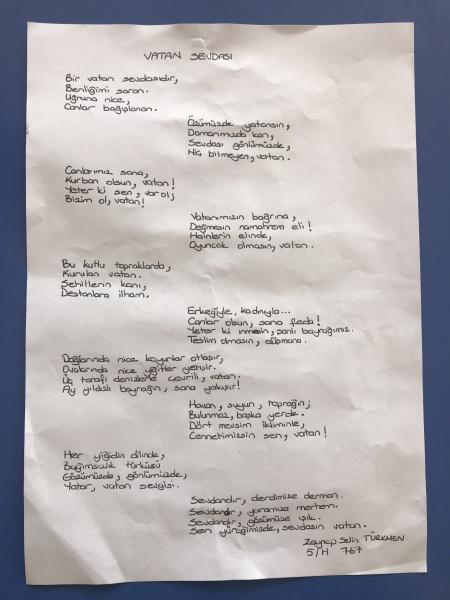 VATAN SEVDASI
Bir vatan sevdasıdır,
Benliğimi saran.
Uğruna nice,
Canlar bağışlanan.
Özümüzde yatansın,
Damarımızda kan,
Sevdası gönlümüzde,
Hiç bitmeyen, vatan.
Canlarımız sana,
Kurban olsun, vatan!
Yeter ki sen, var ol;
Bizim ol, vatan!
Vatanımızın bağrına,
Değmesin namahrem eli!
Hainlerin elinde,
Oyuncak olmasın, vatan.
Bu kutlu topraklarda,
Kurulan vatan.
Şehitlerin kanı,
Destanlara ilham.
Erkeğiyle, kadınıyla...
Canlar olsun, sana feda!
Yeter ki inmesin, şanlı bayrağımız.
Teslim olmasın, düşmana.
Dağlarında nice koyunlar otlaşır,
Ovalarında nice yiğitler yetişir.
Üç tarafı denizlerle çevrili, vatan.
Ay yıldızlı bayrağın, sana yakışır!
Havan, suyun, toprağın;
Bulunmaz, başka yerde.
Dört mevsim ikliminle,
Cennetimizsin sen, vatan!
Her yiğidin dilinde,
Bağımsızlık türküsü
Gözümüzde, gönlümüzde,
Yatar, vatan sevgisi.
Sevdandır, derdimize derman.
Sevdandır, yaramıza merhem.
Sevdandır, gözümüze ışık.
Sen yüreğimizde, sevdasın vatan.
Zeynep Selin TÜRKMEN
5/H 767